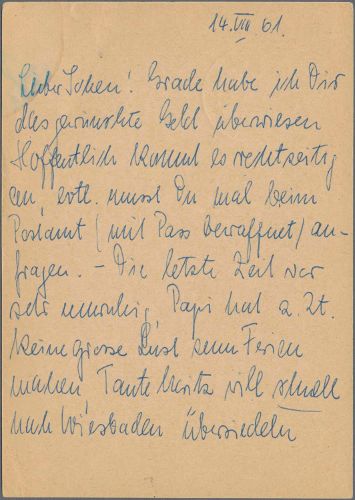 14. VIII 61.
Lieber Jochen! Grade habe ich Dir
das gewünschte Geld überwiesen
Hoffentlich kommt es rechtzeitig
an, evtl. musst Du mal beim
Postamt (mit Pass bewaffnet) an-
fragen. – Die letzte Zeit war
sehr unruhig, Papi hat z. Zt.
keine grosse Lust zum Ferien
machen, Tante will schnell
nach Wiesbaden übersiedeln